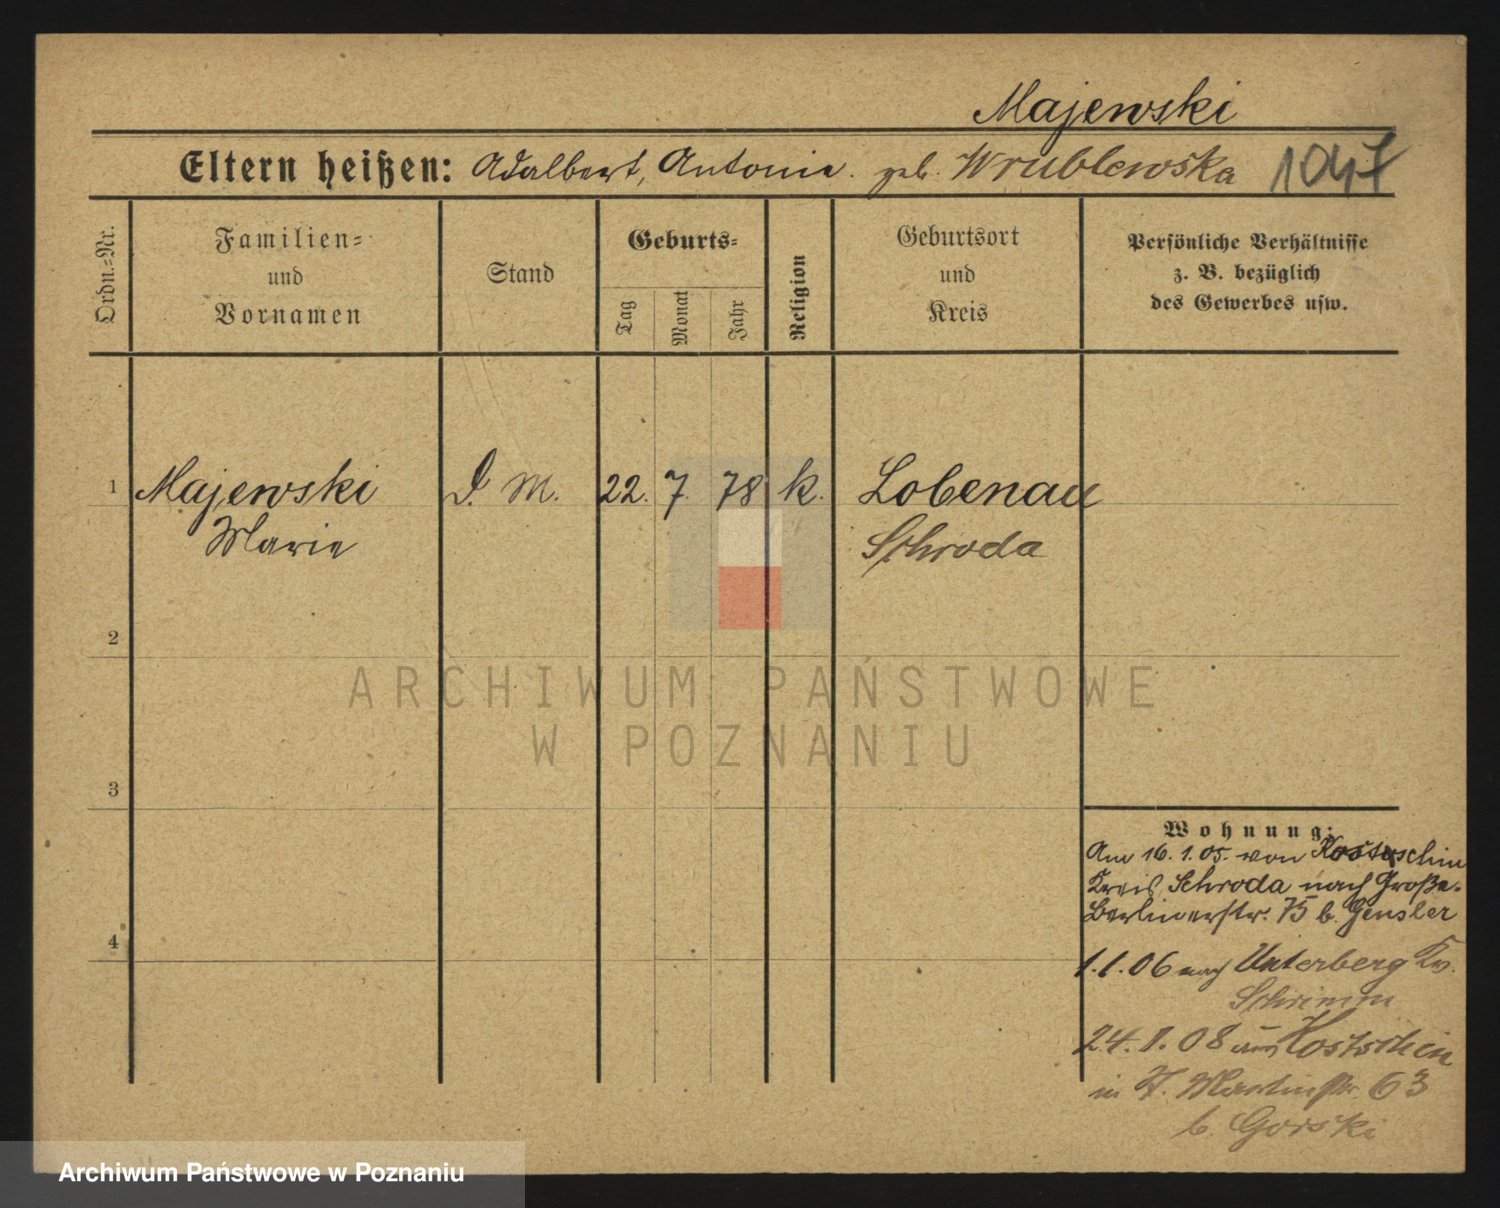 Majewski
Eltern heißen: Adalbert, Antonie. geb. Wrublewska 1047
Ordn.-Nr.
Familien-
und
Vornamen
Stand
Geburts-
Tag
Monat
Jahr
Religion
Geburtsort
und
Kreis
Persönliche Verhältnisse
z. B. bezüglich
des Gewerbes usw.
1 Majewski D. M. 22. 7. 78 k. Lobenau
Marie Schroda
2
3
4
Wohnung:
Am 16.1.05. von Kostschin
Kreis Schroda nach Große-
Berlinerstr. 75 b. Gensler
1.1.06 nach Unterberg Kr.
Schrimm
24. 1. 08 aus Kostschin
in St. Martinstr. 63
b. Gorski
ARCHIWUM PAŃSTWOWE
W POZNANIU
Archiwum Państwowe w Poznaniu